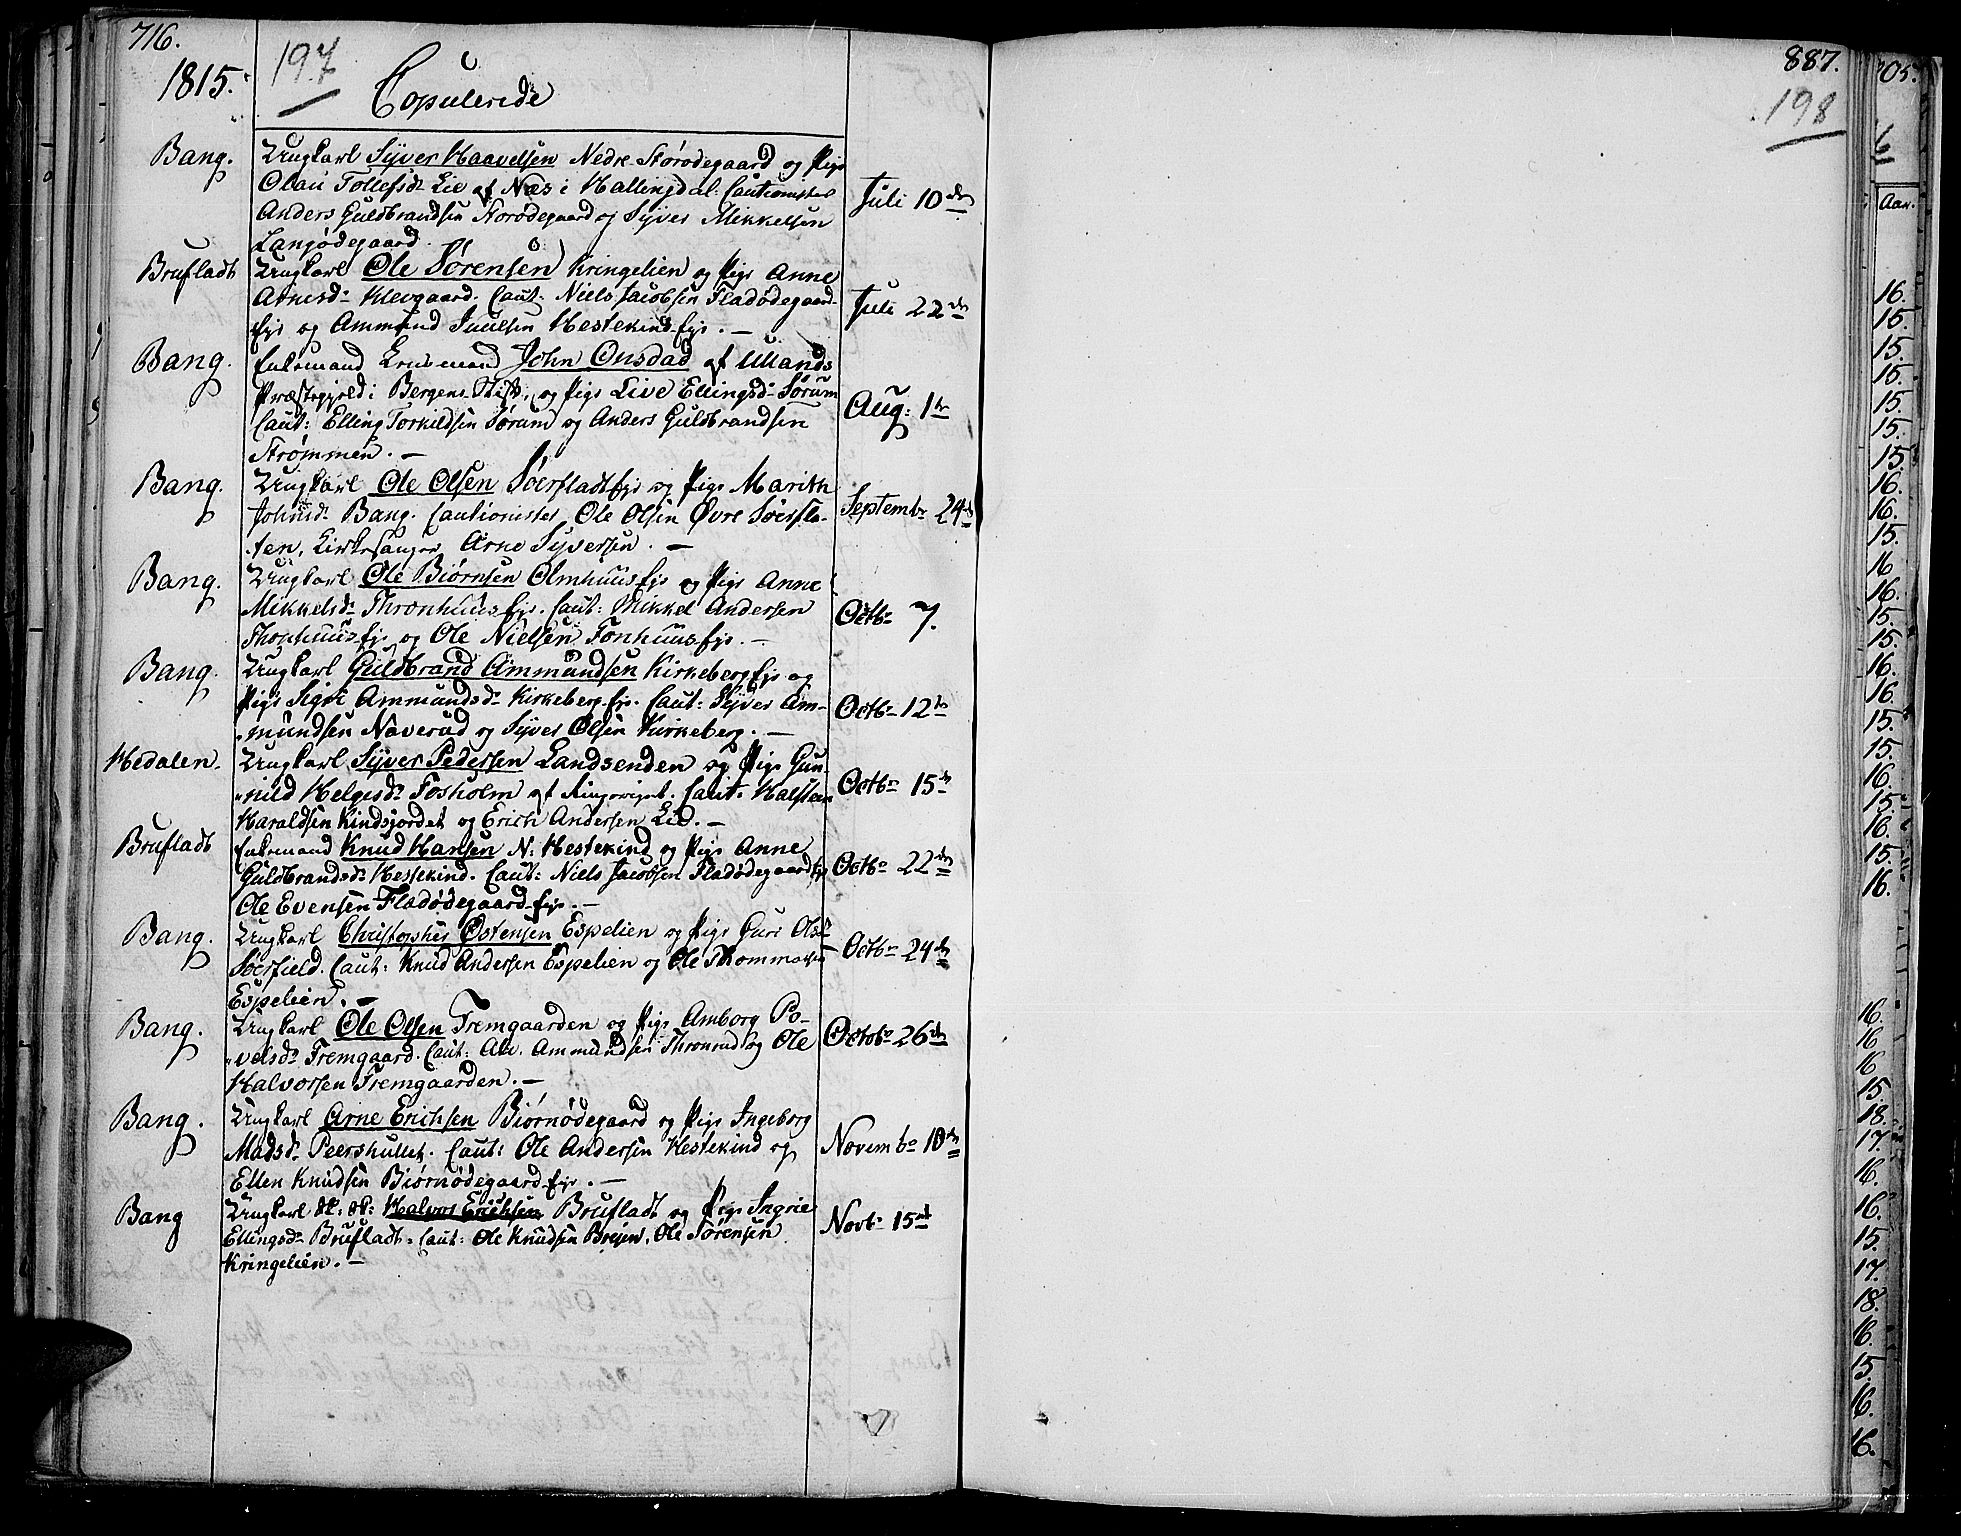 716.
197
1815.
Copulerede
Bang.
Ungkarl Syver Haavelsen Nedre Størødegaard og Pige
Olau Tollefsd: Lie af Næs i Hallingdal. Cautionister
Anders Guldbrandsen Storødegaard og Syver Mikkelsen
Langødegaard.
Juli 10de
Brufladt
Ungkarl Ole Sørensen Kringelien og Pige Anne
Arnesd: Klevgaard. Caut: Niels Jacobsen Fladødegaard-
eje og Ammund Juulsen Hestekind-eje. —
Juli 22de
Bang.
Enkemand John Onsdad af Ullands
Præstegjeld i Bergens Stift, og Pige Live Ellingsd: Sørum
Caut: Elling Torkildsen Sørum og Anders Guldbrandsen
Strømmen. —
Aug: 1te
Bang.
Ungkarl Ole Olsen Søerfladteje og Pige Marith
Johnsd: Bang. Cautionister, Ole Olsen Øvre Søerfla-
ten, Kirkesanger Arne Syversen. —
Septembr 24de
Bang.
Ungkarl Ole Biørnsen Olmhuuseje og Pige Anne
Mikkelsd: Thronhuuseje. Caut: Mikkel Andersen
Thonhuuseje og Ole Nielsen Tonhuuseje. —
Octbr 7.
Bang.
Ungkarl Guldbrand Ammundsen Kirkebergeje og
Pige Sigri Ammundsd: Kirkeberg-eje. Caut: Syver Am-
mundsen Naverud og Syver Olsen Kirkeberg. —
Octbr 12te
Hedalen.
Ungkarl Syver Pedersen Landsenden og Pige Gun-
nild Helgesd: Fosholm af Ringeriget. Caut: Halsten
Haraldsen Kindsjordet og Erich Andersen Lid. —
Octbr 15de
Brufladt
Enkemand Knud Hansen N: Hestekind og Pige Anne
Guldbrandsd: Hestekind. Caut: Niels Jacobsen Fladødegaardeje
Ole Evensen Fladødegaard-eje. —
Octbr 22de
Bang.
Ungkarl Christopher Østensen Espelien og Pige Guri Olsd:
Søerfield. Caut: Knud Andersen Espelien og Ole Thommesen
Espelien. —
Octbr 24de
Bang.
Ungkarl Ole Olsen Fremgaarden og Pige Amborg Po-
velsd: Fremgaard. Caut: Ammundsen Thronrud og Ole
Halvorsen Fremgaarden. —
Octobr 26de
Bang.
Ungkarl Arne Erichsen Biørnødegaard og Pige Ingeborg
Madsd: Peershullet. Caut: Ole Andersen Hestekind og
Ellen Knudsen Biørnødegaard-eje. —
Novembr 10de
Bang
Ungkarl Sk: Sk: Halvor Erichsen Brufladt og Pige Ingrie
Ellingsd: Brufladt. Caut: Ole Knudsen Brejen, Ole Sørensen
Kringelien. —
Novbr 15de
887.
198
05.
Aar.
16.
15.
15.
15.
15.
15.
15.
16.
16.
15.
16
16.
15.
15.
16.
16.
15.
15.
16.
15.
16.
15.
16.
16.
16
16
15.
18.
17.
16.
16.
15.
17.
18.
16.
15.
16.
16.